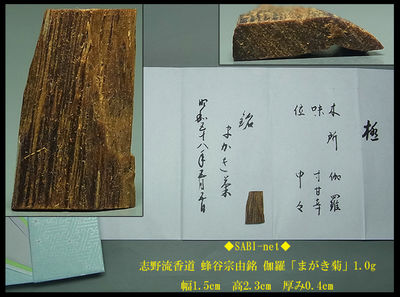 極
木所 伽羅
味 寸甘辛
位 中々
銘
まがき菊
昭和三十八年五月五日
◆SABI-net◆
志野流香道 蜂谷宗由銘 伽羅「まがき菊」1.0g
幅1.5cm 高2.3cm 厚み0.4cm